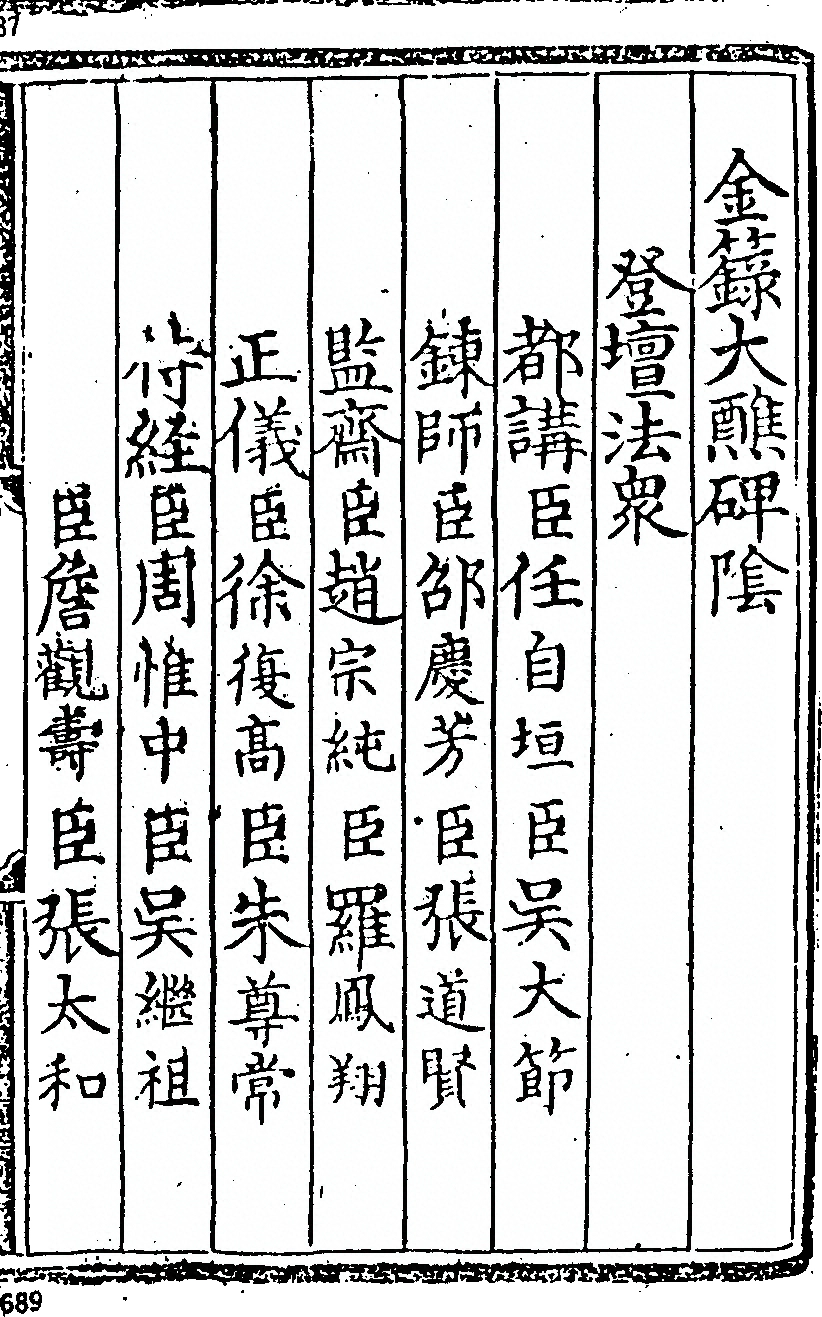 金籙大醮碑陰
登壇法衆
都講臣任自垣臣吳大節
鍊師臣邵慶芳臣張道賢
監齋臣趙宗純臣羅鳳翔
正儀臣徐復高臣朱尊常
符経臣周惟中臣吳繼祖
臣詹觀壽臣張太和
689